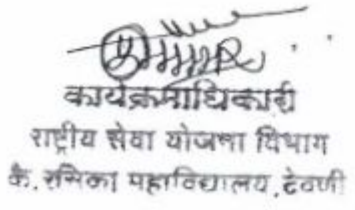 कार्यक्रमाधिकारी
राष्ट्रीय सेवा योजना विभाग
कै. रसिका महाविद्यालय, देवणी